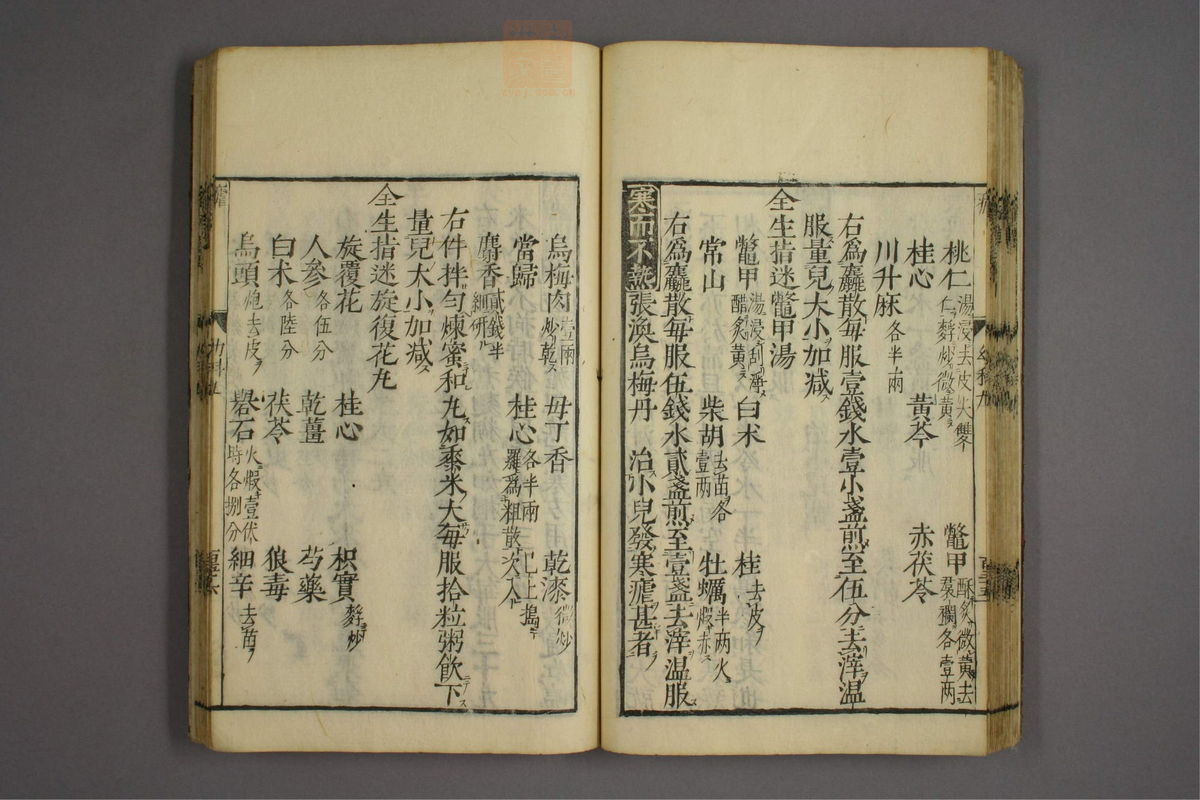 桃仁湯浸去皮尖雙仁麩炒微黃 鼈甲酥炙微黃去裙襴各壹两
桂心 黃芩 赤茯苓
川升麻各半兩
右爲麤散每服壹錢水壹小盞煎至伍分去滓温
服量兒大小加减
全生指迷鼈甲湯
鼈甲湯浸刮淨醋炙黃 白术 桂去皮
常山 柴胡去苗各壹两 牡蠣半两火煆赤
右爲麤散每服伍錢水貳盞煎至壹盞去滓温服
寒而不熱張渙烏梅丹 治小兒發寒瘧甚者
烏梅肉壹兩炒乾 母丁香 乾漆微炒
當歸 桂心各半兩已上搗羅爲粗散次入
麝香貳錢半細研
右件拌勻煉蜜和丸如黍米大每服拾粒粥飲下
量兒大小加减
全生指迷旋復花丸
旋覆花 桂心 枳實麩炒
人參各伍分 乾薑 芍藥
白术各陸分 茯苓 狼毒
烏頭炮去皮 礜石火煆壹伏時各捌分 細辛去苗